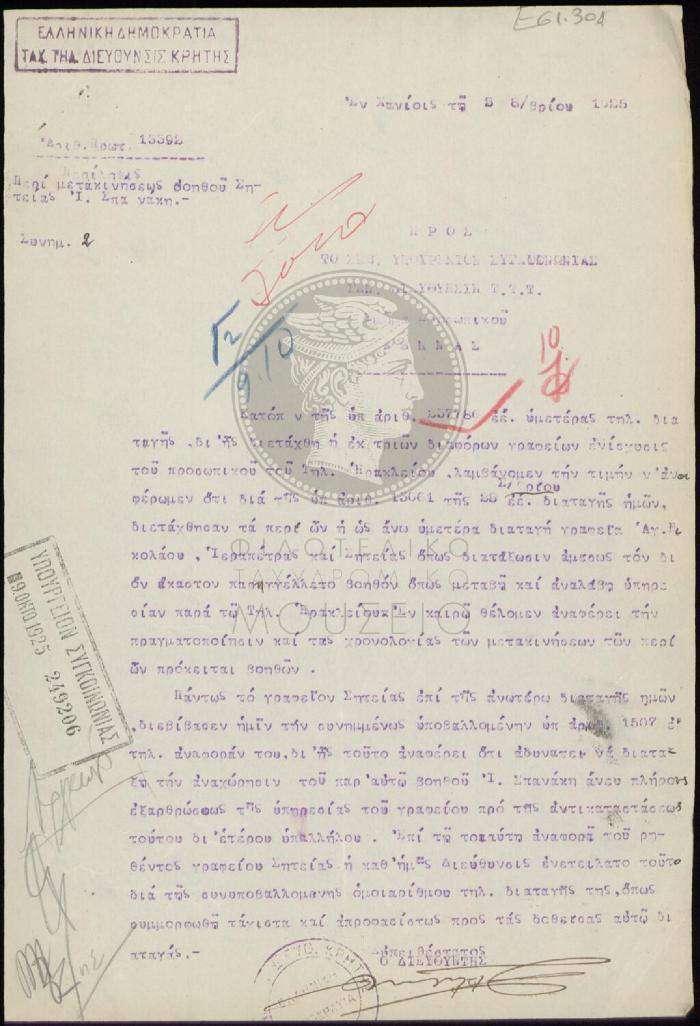 Ε61.304
ΕΛΛΗΝΙΚΗ ΔΗΜΟΚΡΑΤΙΑ
ΤΑΧ. ΤΗΛ. ΔΙΕΥΘΥΝΣΙΣ ΚΡΗΤΗΣ
Ἐν Χανίοις τῇ 8/βρίου 1925
Ἀριθ.Πρωτ. 13392
Περίληψις
Περί μετακινήσεως βοηθοῦ Ση-
τείας Ἰ. Σπανάκη.-
Συνημ. 2
ΠΡΟΣ
ΤΟ ΣΕΒ. ΥΠΟΥΡΓΕΙΟΝ ΣΥΓΚΟΙΝΩΝΙΑΣ
ΓΕΝ. ΔΙΕΥΘΥΝΣΙΝ Τ.Τ.Τ.
ΑΘΗΝΑΣ
9.10
10
Κατόπ ν τῆς ὑπ ἀριθ. 237786 ἐ.ἔ. ὑμετέρας τηλ. δια
ταγῆς ,δι ἧς διετάχθη ἡ ἐκ τριῶν διαφόρων γραφείων ἐνίσχυσις
τοῦ προσωπικοῦ τοῦ Τηλ. Ἡρακλείου ,λαμβάνομεν τήν τιμήν ν' ἀνα
φέρωμεν ὅτι διά τῆς ὑπ ἀριθ. 13061 τῆς 28 ἐ.ἔ. διαταγῆς ἡμῶν,
διετάχθησαν τά περί ὧν ἡ ὡς ἄνω ὑμετέρα διαταγή γραφεῖα Ἁγ.Νι
κολάου , Ἱεραπέτρας καί Σητείας ὅπως διατάξωσιν ἀμέσως τόν δι
ὅν ἕκαστον παρηγγέλλετο βοηθόν ὅπως μεταβῇ καί ἀναλάβῃ ὑπηρε
σίαν παρά τῷ Τηλ. Ἡρακλείου. Ἐν καιρῷ θέλομεν ἀναφέρει τήν
πραγματοποίησιν καί τας χρονολογίας τῶν μετακινήσεων τῶν περί
ὧν πρόκειται βοηθῶν .
Πάντως τό γραφεῖον Σητείας ἐπί τῆς ἀνωτέρω διαταγῆς ἡμῶν
,διεβίβασεν ἡμῖν τήν συνημμένως ὑποβαλλομένην ὑπ ἀριθ. 1507 ἐ.
τηλ. ἀναφοράν του,δι ἧς τοῦτο ἀναφέρει ὅτι ἀδυνατεῖ νά διατά
ξῃ τήν ἀναχώρησιν τοῦ παρ'αὐτῷ βοηθοῦ Ἰ. Σπανάκη ἄνευ πλήρους
ἐξαρθρώσεως τῆς ὑπηρεσίας τοῦ γραφείου πρό τῆς ἀντικαταστάσεως
τούτου δι ἑτέρου ὑπαλλήλου . Ἐπί τῇ τοιαύτῃ ἀναφορᾷ τοῦ ρη-
θέντος γραφείου Σητείας ἡ καθ'ἡμᾶς Διεύθυνσις ἐνετείλατο τοῦτο
διά τῆς συνυποβαλλομένης ὁμοιαρίθμου τηλ. διαταγῆς της ,ὅπως
συμμορφωθῇ τάχιστα καί ἀπροφασίστως πρός τάς δοθείσας αὐτῷ δι
αταγάς.-
εὐπειθέστατος
Ὁ ΔΙΕΥΘΥΝΤΗΣ
ΥΠΟΥΡΓΕΙΟΝ ΣΥΓΚΟΙΝΩΝΙΑΣ
9.ΟΚΤΩ 1925 249206
ΦΙΛΟΤΕΛΙΚΟ
ΤΑΧΥΔΡΟΜΙΚΟ
ΜΟΥΣΕΙΟ